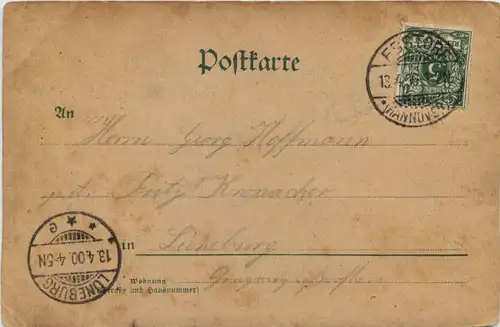 Postkarte
EBSTORF
13.4.
* (HANNOVER)
An
Herrn Georg Hoffmann
Fritz Kronacher
in Lüneburg
LÜNEBURG
13.4.00. 4-5N
* * e
Wohnung
(Straße und Hausnummer)